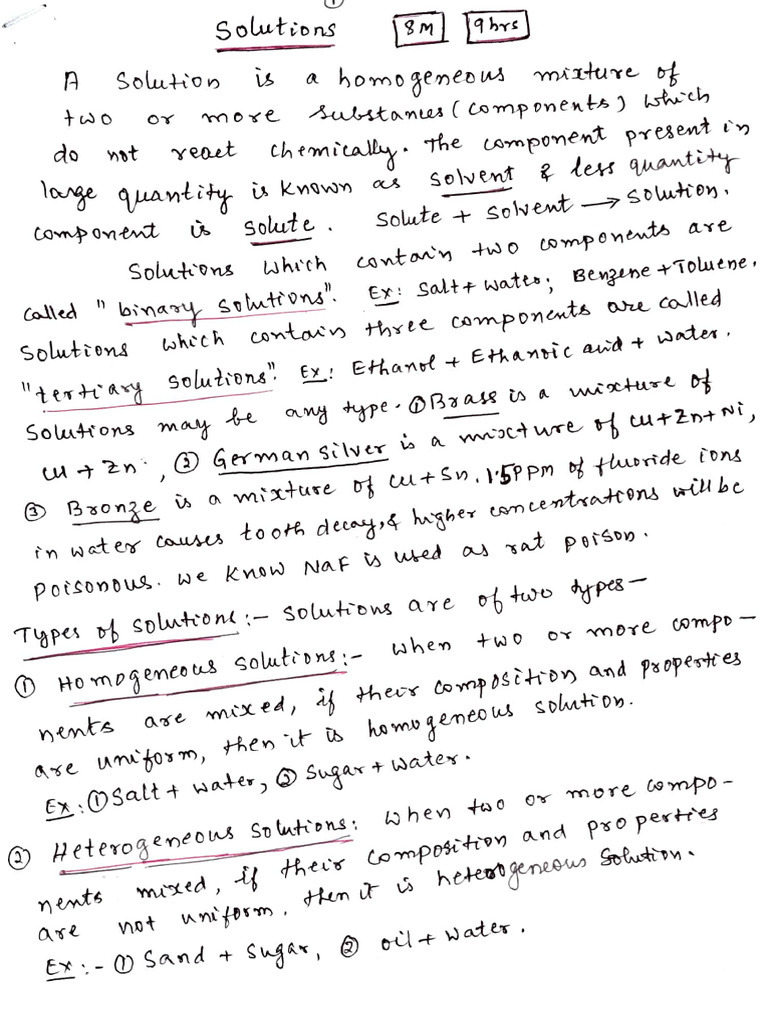 ①
Solutions 8M 9hrs
A solution is a homogeneous mixture of
two or more substances (components) which
do not react chemically. The component present in
large quantity is known as solvent & less quantity
component is solute. Solute + solvent → solution.
Solutions which contain two components are
called "binary solutions". Ex: Salt + water; Benzene + Toluene.
Solutions which contain three components are called
"tertiary solutions". Ex: Ethanol + Ethanoic acid + water.
Solutions may be any type. ① Brass is a mixture of
Cu + Zn, ② German silver is a mixture of Cu + Zn + Ni,
③ Bronze is a mixture of Cu + Sn. 1.5ppm of fluoride ions
in water causes tooth decay, & higher concentrations will be
poisonous. We know NaF is used as rat poison.
Types of solutions:- Solutions are of two types—
① Homogeneous solutions:- When two or more compo-
nents are mixed, if their composition and properties
are uniform, then it is homogeneous solution.
Ex: ① Salt + water, ② Sugar + water.
② Heterogeneous solutions: When two or more compo-
nents mixed, if their composition and properties
are not uniform, then it is heterogeneous solution.
Ex:- ① Sand + sugar, ② oil + water.